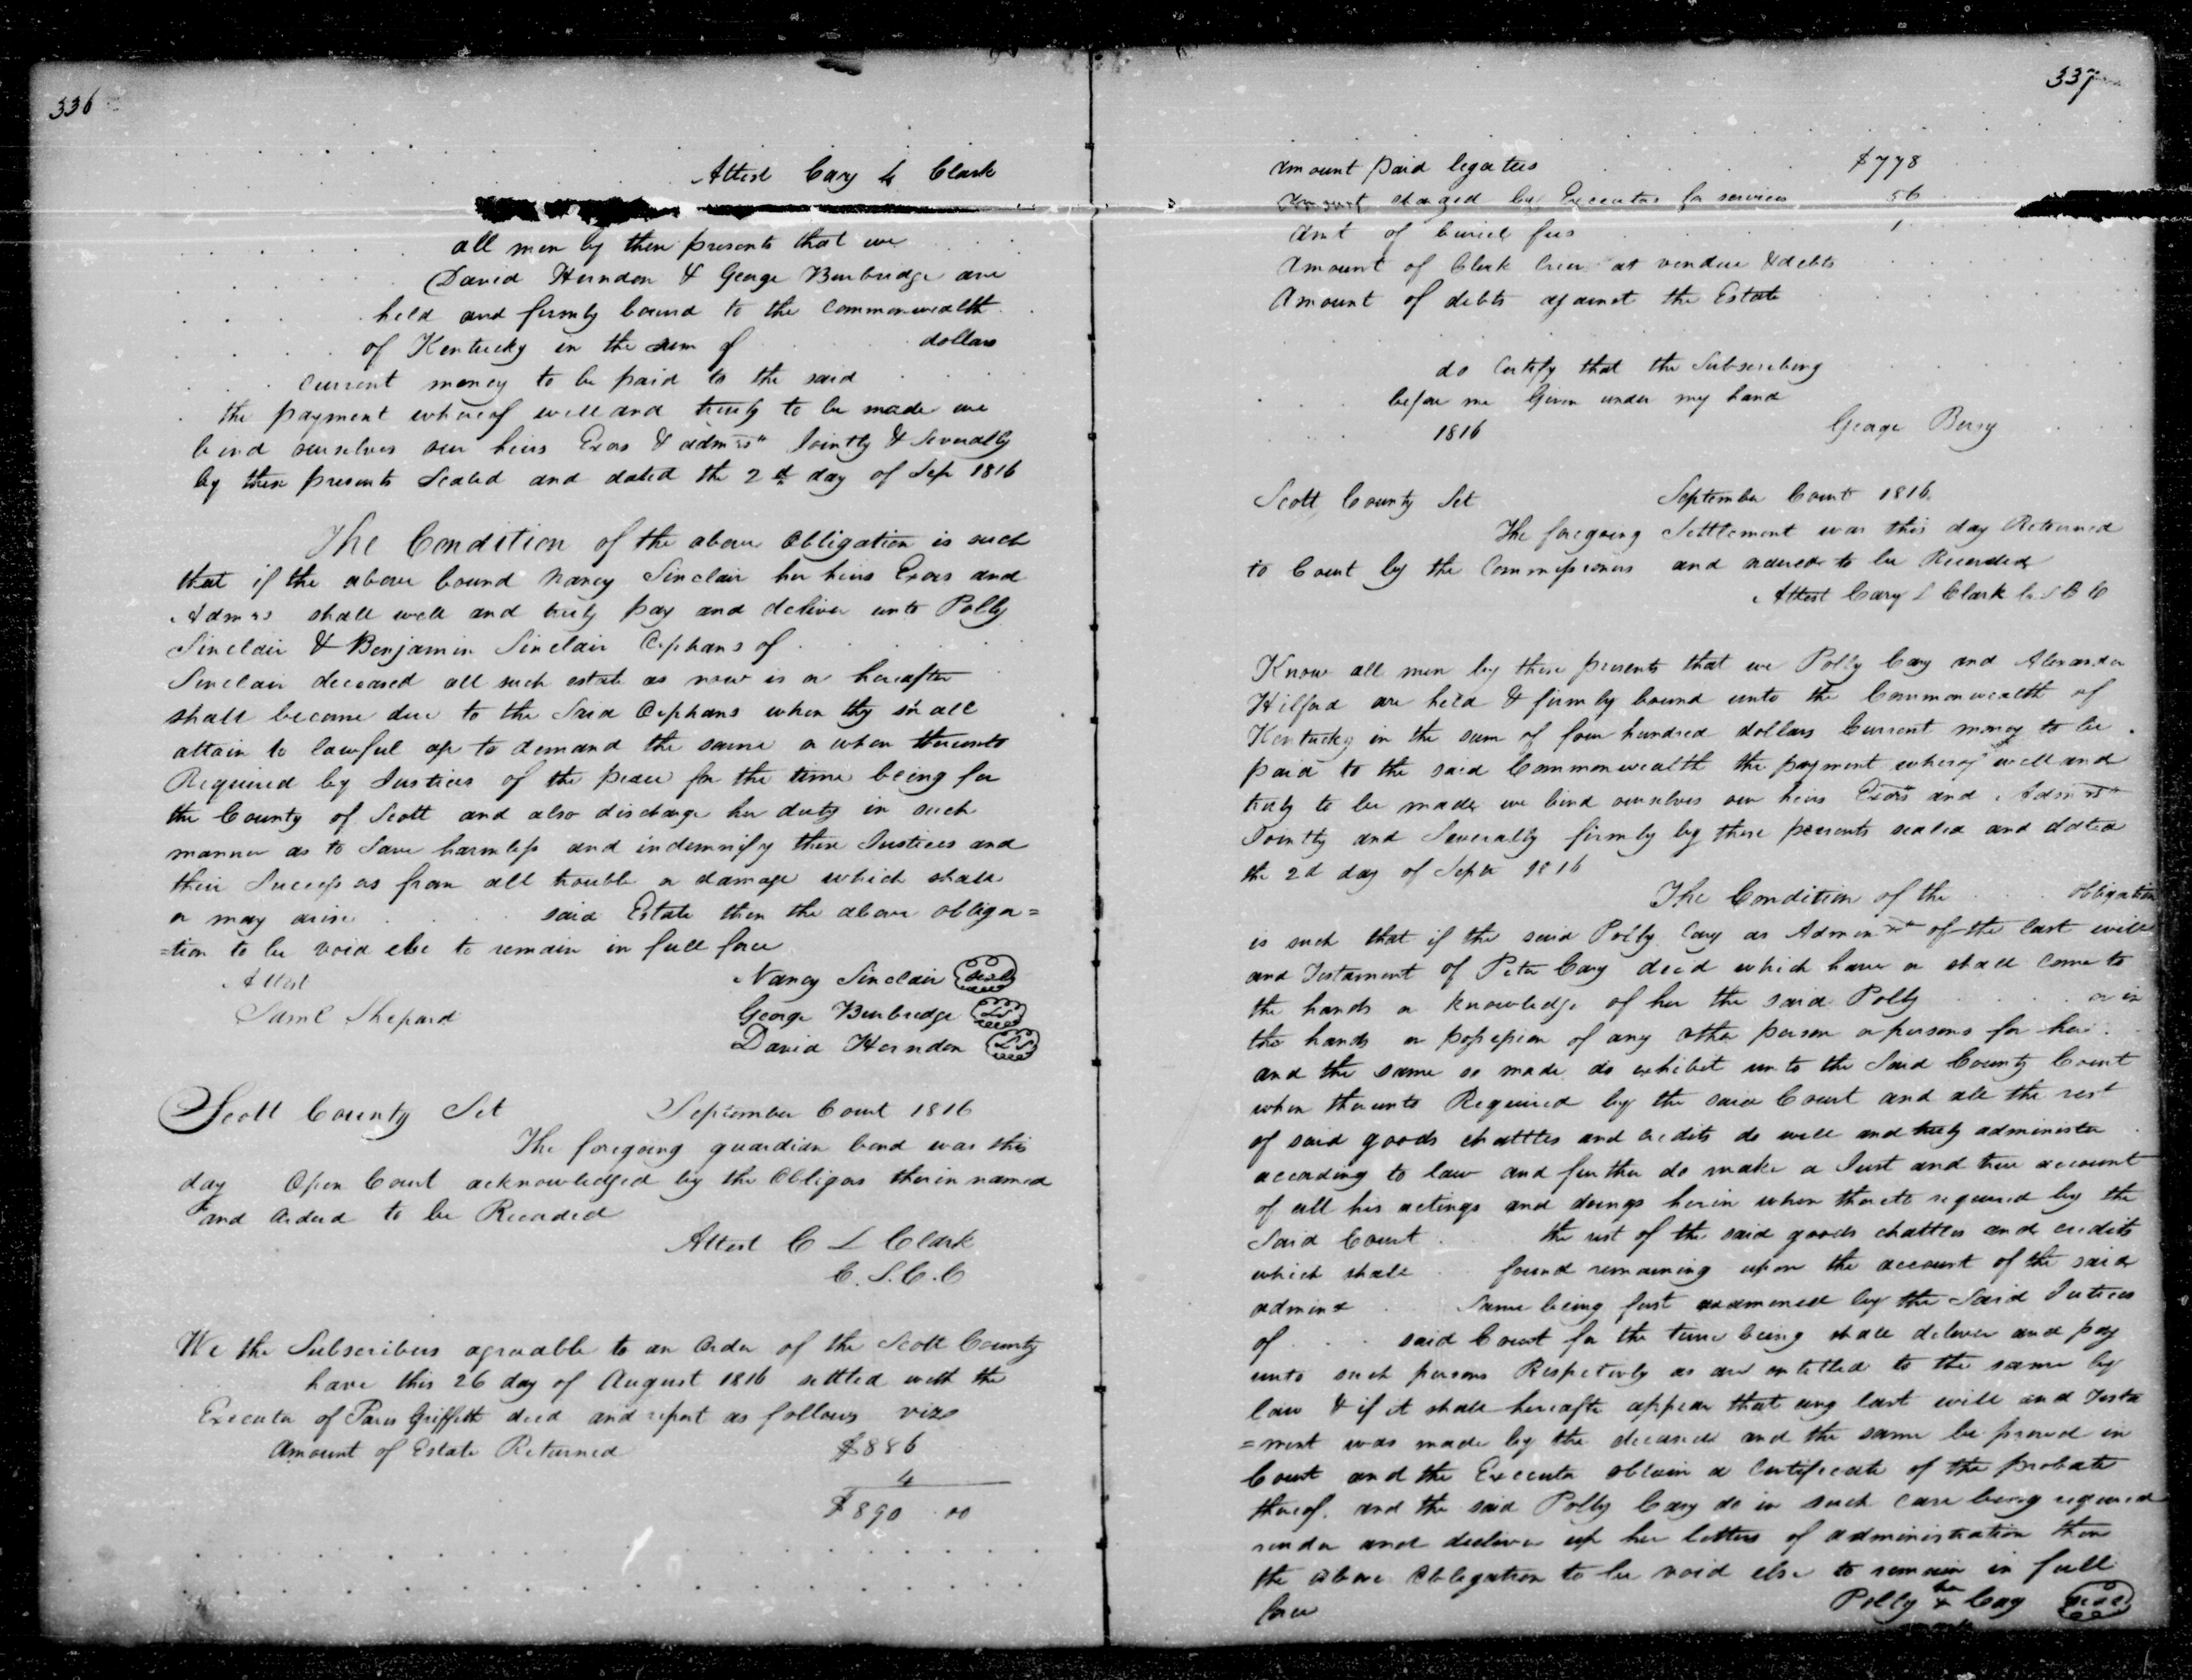 336
Attest Cary L Clark
all men by these presents that we
David Herndon & George Burbridge are
held and firmly bound to the commonwealth
of Kentucky in the sum of dollars
Current money to be paid to the said
the payment whereof well and truly to be made we
bind ourselves our heirs Exors & admrs Jointly & Severally
by these presents Sealed and dated the 2d day of Sep 1816
The Condition of the above Obligation is such
that if the above bound Nancy Sinclair her heirs Exors and
Admrs shall well and truly pay and deliver unto Polly
Sinclair & Benjamin Sinclair Orphans of
Sinclair deceased all such estate as now is or hereafter
shall become due to the Said Orphans when thy shall
attain to lawful age to demand the same or when thereunto
Required by Justices of the peace for the time being for
the County of Scott and also discharge her duty in such
manner as to Save harmless and indemnify these Justices and
their Successors from all trouble or damage which shall
or may arise said Estate then the above obliga=
=tion to be void else to remain in full force
Attest Nancy Sinclair Seal
Saml Shepard George Burbridge LS
David Herndon LS
Scott County Sct September Court 1816
The foregoing guardian bond was this
day Open Court acknowledged by the Obligors therein named
and Orderd to be Recorded
Attest C L Clark
C.S.C.C
We the Subscribers agreable to an Order of the Scott County
have this 26 day of August 1816 settled with the
Executor of Paris Griffett decd and report as follows viz
Amount of Estate Returned $886
4
$890 00
337
Amount paid legatees $778
Amount charged by Executor for services 56
Amt of buriel fees 1
Amount of Clerk Crier at vendue & debts
Amount of debts against the Estate
do Certify that the Subscribing
before me Given under my hand
1816 George Berry
Scott County Sct September Court 1816
The foregoing Settlement was this day Returned
to Court by the Commissioners and ordered to be Recorded
Attest Cary L Clark C S C C
Know all men by these presents that we Polly Cary and Alexander
Hilford are held & firmly bound unto the Commonwealth of
Kentucky in the sum of four hundred dollars Current money to be
paid to the said Commonwealth the payment whereof well and
truly to be made we bind ourselves our heirs Exors and Admrs
Jointly and Severally firmly by these presents sealed and dated
the 2d day of Sept 1816
The Condition of the Obligation
is such that if the said Polly Cary as Admin of the last will
and Testament of Peter Cary decd which have or shall come to
the hands or knowledge of her the said Polly or in
the hands or possession of any other person or persons for her
and the same so made do exhibit unto the Said County Court
when thereunto Required by the said Court and all the rest
of said goods chattles and credits do well and truly administer
according to law and further do make a Just and true account
of all his actings and doings herein when thereto required by the
Said Court the rest of the said goods chattles and credits
which shall found remaining upon the account of the said
admin Same being first examined by the Said Justices
of said Court for the time being shall deliver and pay
unto such persons Respectively as are entitled to the same by
law & if it shall hereafter appear that any last will and Testa
=ment was made by the deceased and the same be proved in
Court and the Executor obtain a Certificate of the probate
thereof and the said Polly Cary do in such case being required
render and deliver up her letters of administration then
the above Obligation to be void else to remain in full
force Polly her x Cary Seal
mark